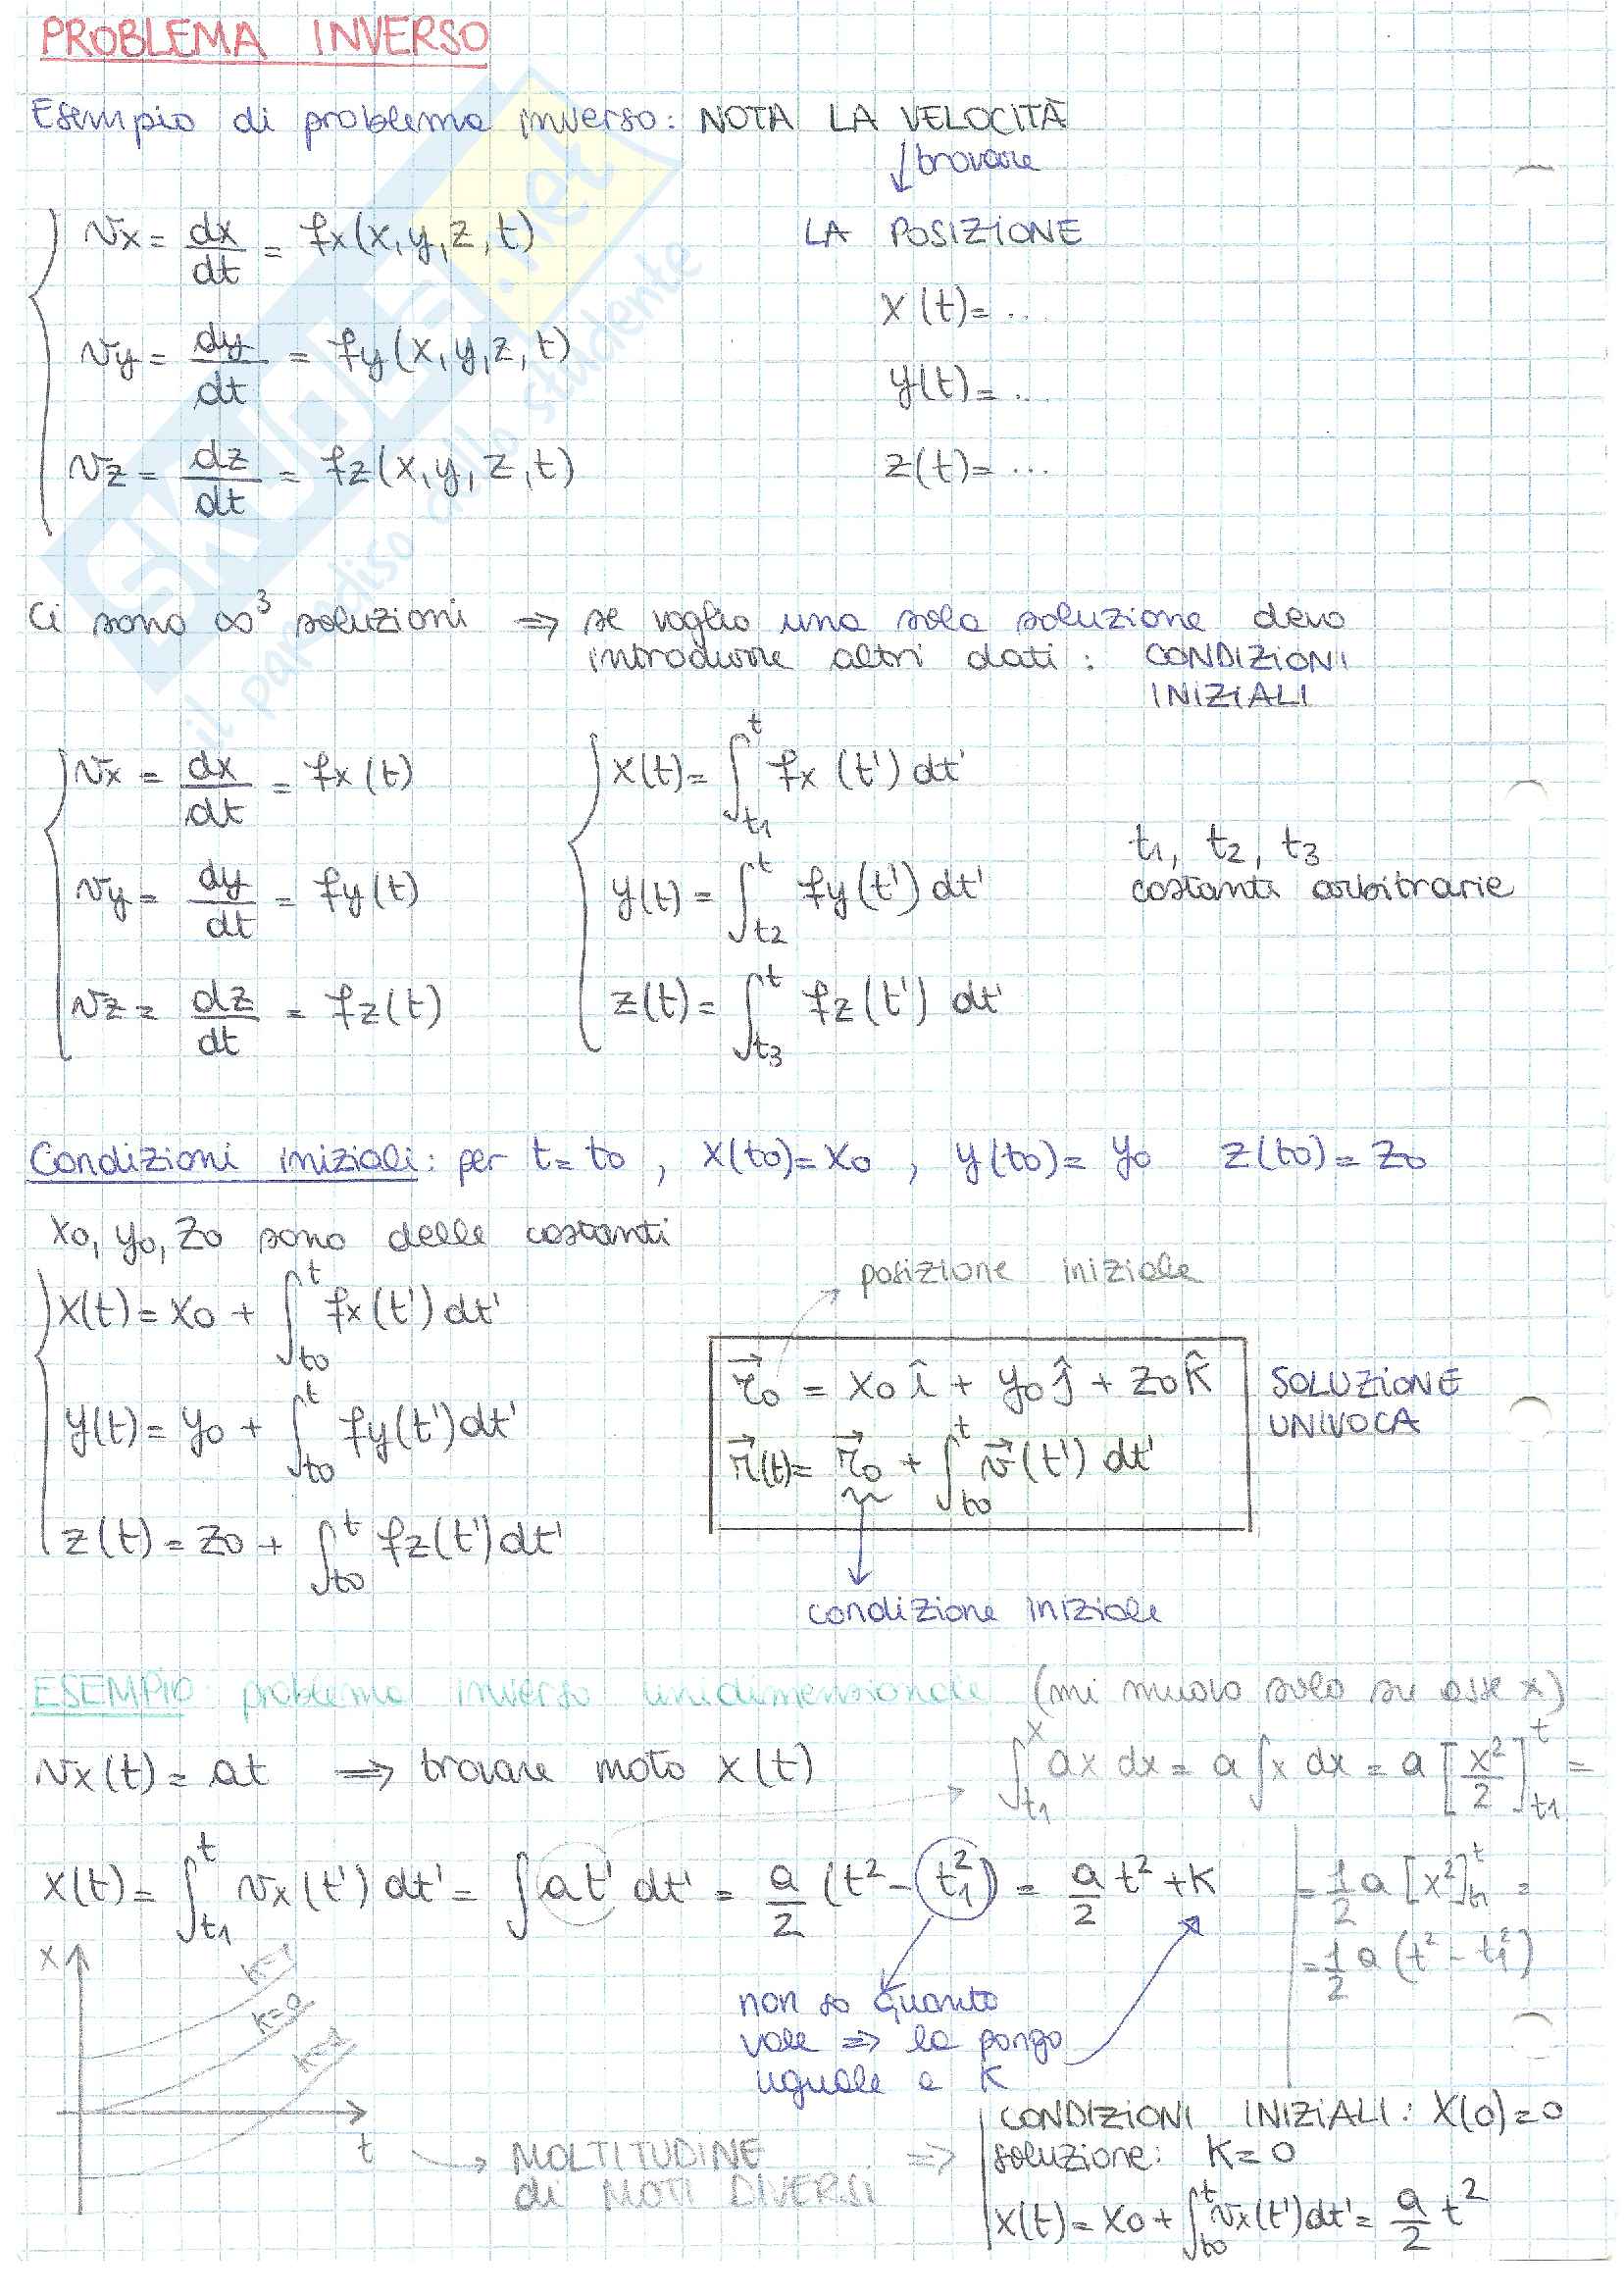 PROBLEMA INVERSO
Esempio di problema inverso: NOTA LA VELOCITÀ
↓ trovare
LA POSIZIONE
vx = dx/dt = fx(x,y,z,t)
x(t)= ...
vy = dy/dt = fy(x,y,z,t)
y(t)= ...
vz = dz/dt = fz(x,y,z,t)
z(t)= ...
Ci sono ∞³ soluzioni ⇒ se voglio una sola soluzione devo
introdurre altri dati: CONDIZIONI
INIZIALI
vx = dx/dt = fx(t)
x(t)= ∫_{t1}^{t} fx(t')dt'
vy = dy/dt = fy(t)
y(t)= ∫_{t2}^{t} fy(t')dt'
vz = dz/dt = fz(t)
z(t)= ∫_{t3}^{t} fz(t')dt'
t1, t2, t3
costanti arbitrarie
Condizioni iniziali: per t=t0, x(t0)=x0, y(t0)=y0 z(t0)=z0
x0, y0, z0 sono delle costanti
x(t)= x0 + ∫_{t0}^{t} fx(t')dt'
y(t)= y0 + ∫_{t0}^{t} fy(t')dt'
z(t)= z0 + ∫_{t0}^{t} fz(t')dt'
posizione iniziale
r⃗0 = x0 î + y0 ĵ + z0 k̂
r⃗(t)= r⃗0 + ∫_{t0}^{t} v⃗(t') dt'
SOLUZIONE
UNIVOCA
condizione iniziale
ESEMPIO: problema inverso unidimensionale (mi muovo solo su asse x)
vx(t)= at ⇒ trovare moto x(t)
∫_{t1}^{x} ax dx = a∫x dx = a[x²/2]_{t1}^{t} =
x(t)= ∫_{t1}^{t} vx(t')dt' = ∫at'dt' = a/2 (t² - t1²) = a/2 t² + k
= 1/2 a [x²]_{t1}^{t} =
= 1/2 a (t² - t1²)
x
k=1
k=0
t
non so quanto
vale ⇒ lo pongo
uguale a K
MOLTITUDINE
di MOTI DIVERSI
⇒
CONDIZIONI INIZIALI: X(0)=0
soluzione: K=0
x(t)= x0 + ∫_{t0}^{t} vx(t')dt' = a/2 t²
SKUOLA.net
il paradiso dello studente